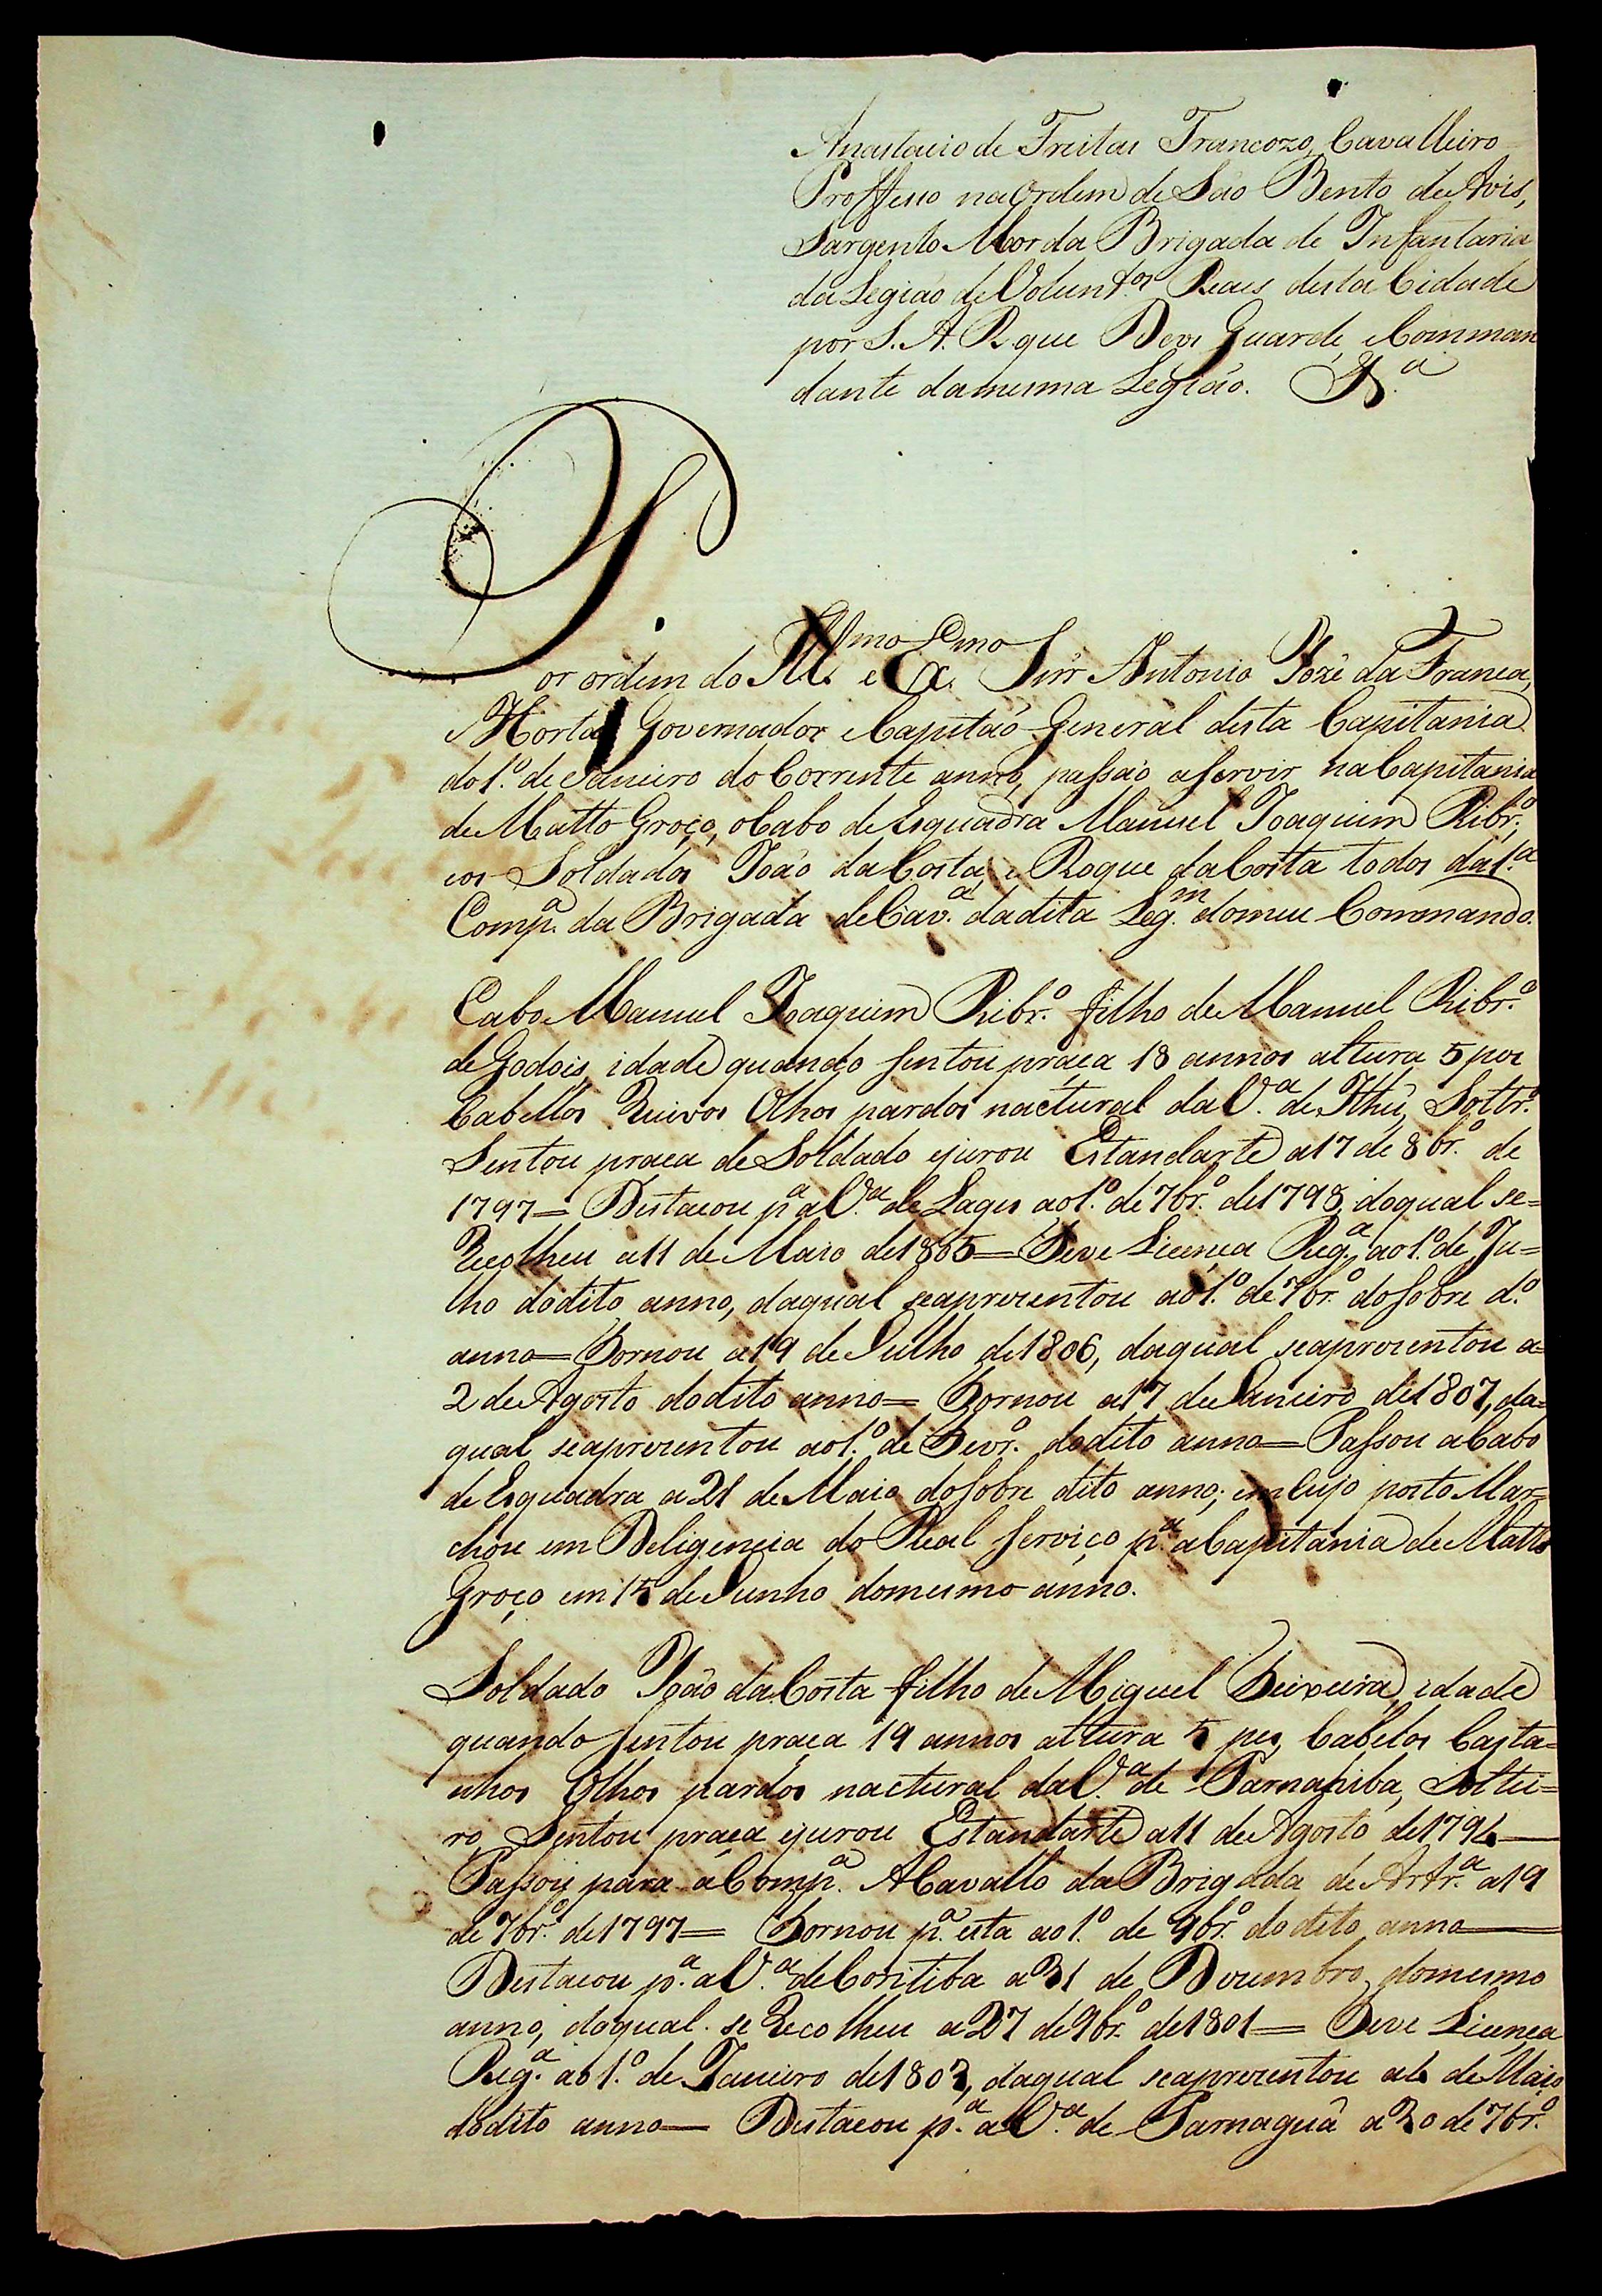 Anastacio de Freitas Trancozo, Cavalleiro
Proffesso na Ordem de São Bento de Avis,
Sargento Mor da Brigada de Infantaria
da Legião de Volunt.os Reaes desta Cidade
por S. A. R. que Deos Guarde, e Comman
dante da mesma Legião. &.a
Por ordem do Ill.mo e Ex.mo Snr Antonio Jozé da Franca,
e Horta Governador e Capitão General desta Capitania
do 1.o de Janeiro do Corrente anno, passão a servir na Capitania
de Matto Groço, o Cabo de Esquadra Manuel Joaquim Ribr.o,
e os Soldados João da Costa, e Roque da Costa todos da 1.a
Comp.a da Brigada de Cav.a da dita Leg.m do meu Commando.
Cabo Manuel Joaquim Ribr.o filho de Manuel Ribr.o
de Godois, idade quando sentou praça 18 annos altura 5 pes
Cabellos Ruivos Olhos pardos nactural da V.a de Ithú, Soltr.o
Sentou praca de Soldado e jurou Estandarte a 17 de 8br.o de
1797= Destacou p.a a V.a de Lages ao 1.o de 7br.o de 1798, do qual se=
Recolheu a 11 de Maio de 1805= Teve Licença Reg.a, ao 1.o de Ju=
lho do dito anno, da qual se aprezentou ao 1.o de 7br.o do sobre d.o
anno= Tornou a 19 de Julho de 1806, da qual se aprezentou a=
2 de Agosto do dito anno= Tornou a 17 de Janeiro de 1807, da=
qual se aprezentou ao 1.o de Fevr.o do dito anno= Passou a Cabo
de Esquadra a 21 de Maio do sobre dito anno; em cujo posto Mar=
chou em Deligencia do Real serviço p.a a Capitania de Matto
Groço em 15 de Junho do mesmo anno.
Soldado João da Costa filho de Miguel Teixeira, idade
quando sentou praça 19 annos altura 5 pes, Cabelos Casta=
nhos Olhos pardos nactural da V.a de Parnahiba, Soltei=
ro, Sentou praça e jurou Estandarte a 11 de Agosto de 1794—
Passou para a Comp.a A Cavallo da Brigada de Artr.a a 19
de 7br.o de 1797= Tornou p.a esta ao 1.o de 9br.o do dito anno—
Destacou p.a a V.a de Coritiba a 31 de Dezembro do mesmo
anno, do qual se Recolheu a 27 de 9br.o de 1801= Teve Licença
Reg.a ao 1.o de Janeiro de 1803, da qual se aprezentou a 6 de Maio
do dito anno— Destacou p.a a V.a de Parnaguá a 30 de 7br.o